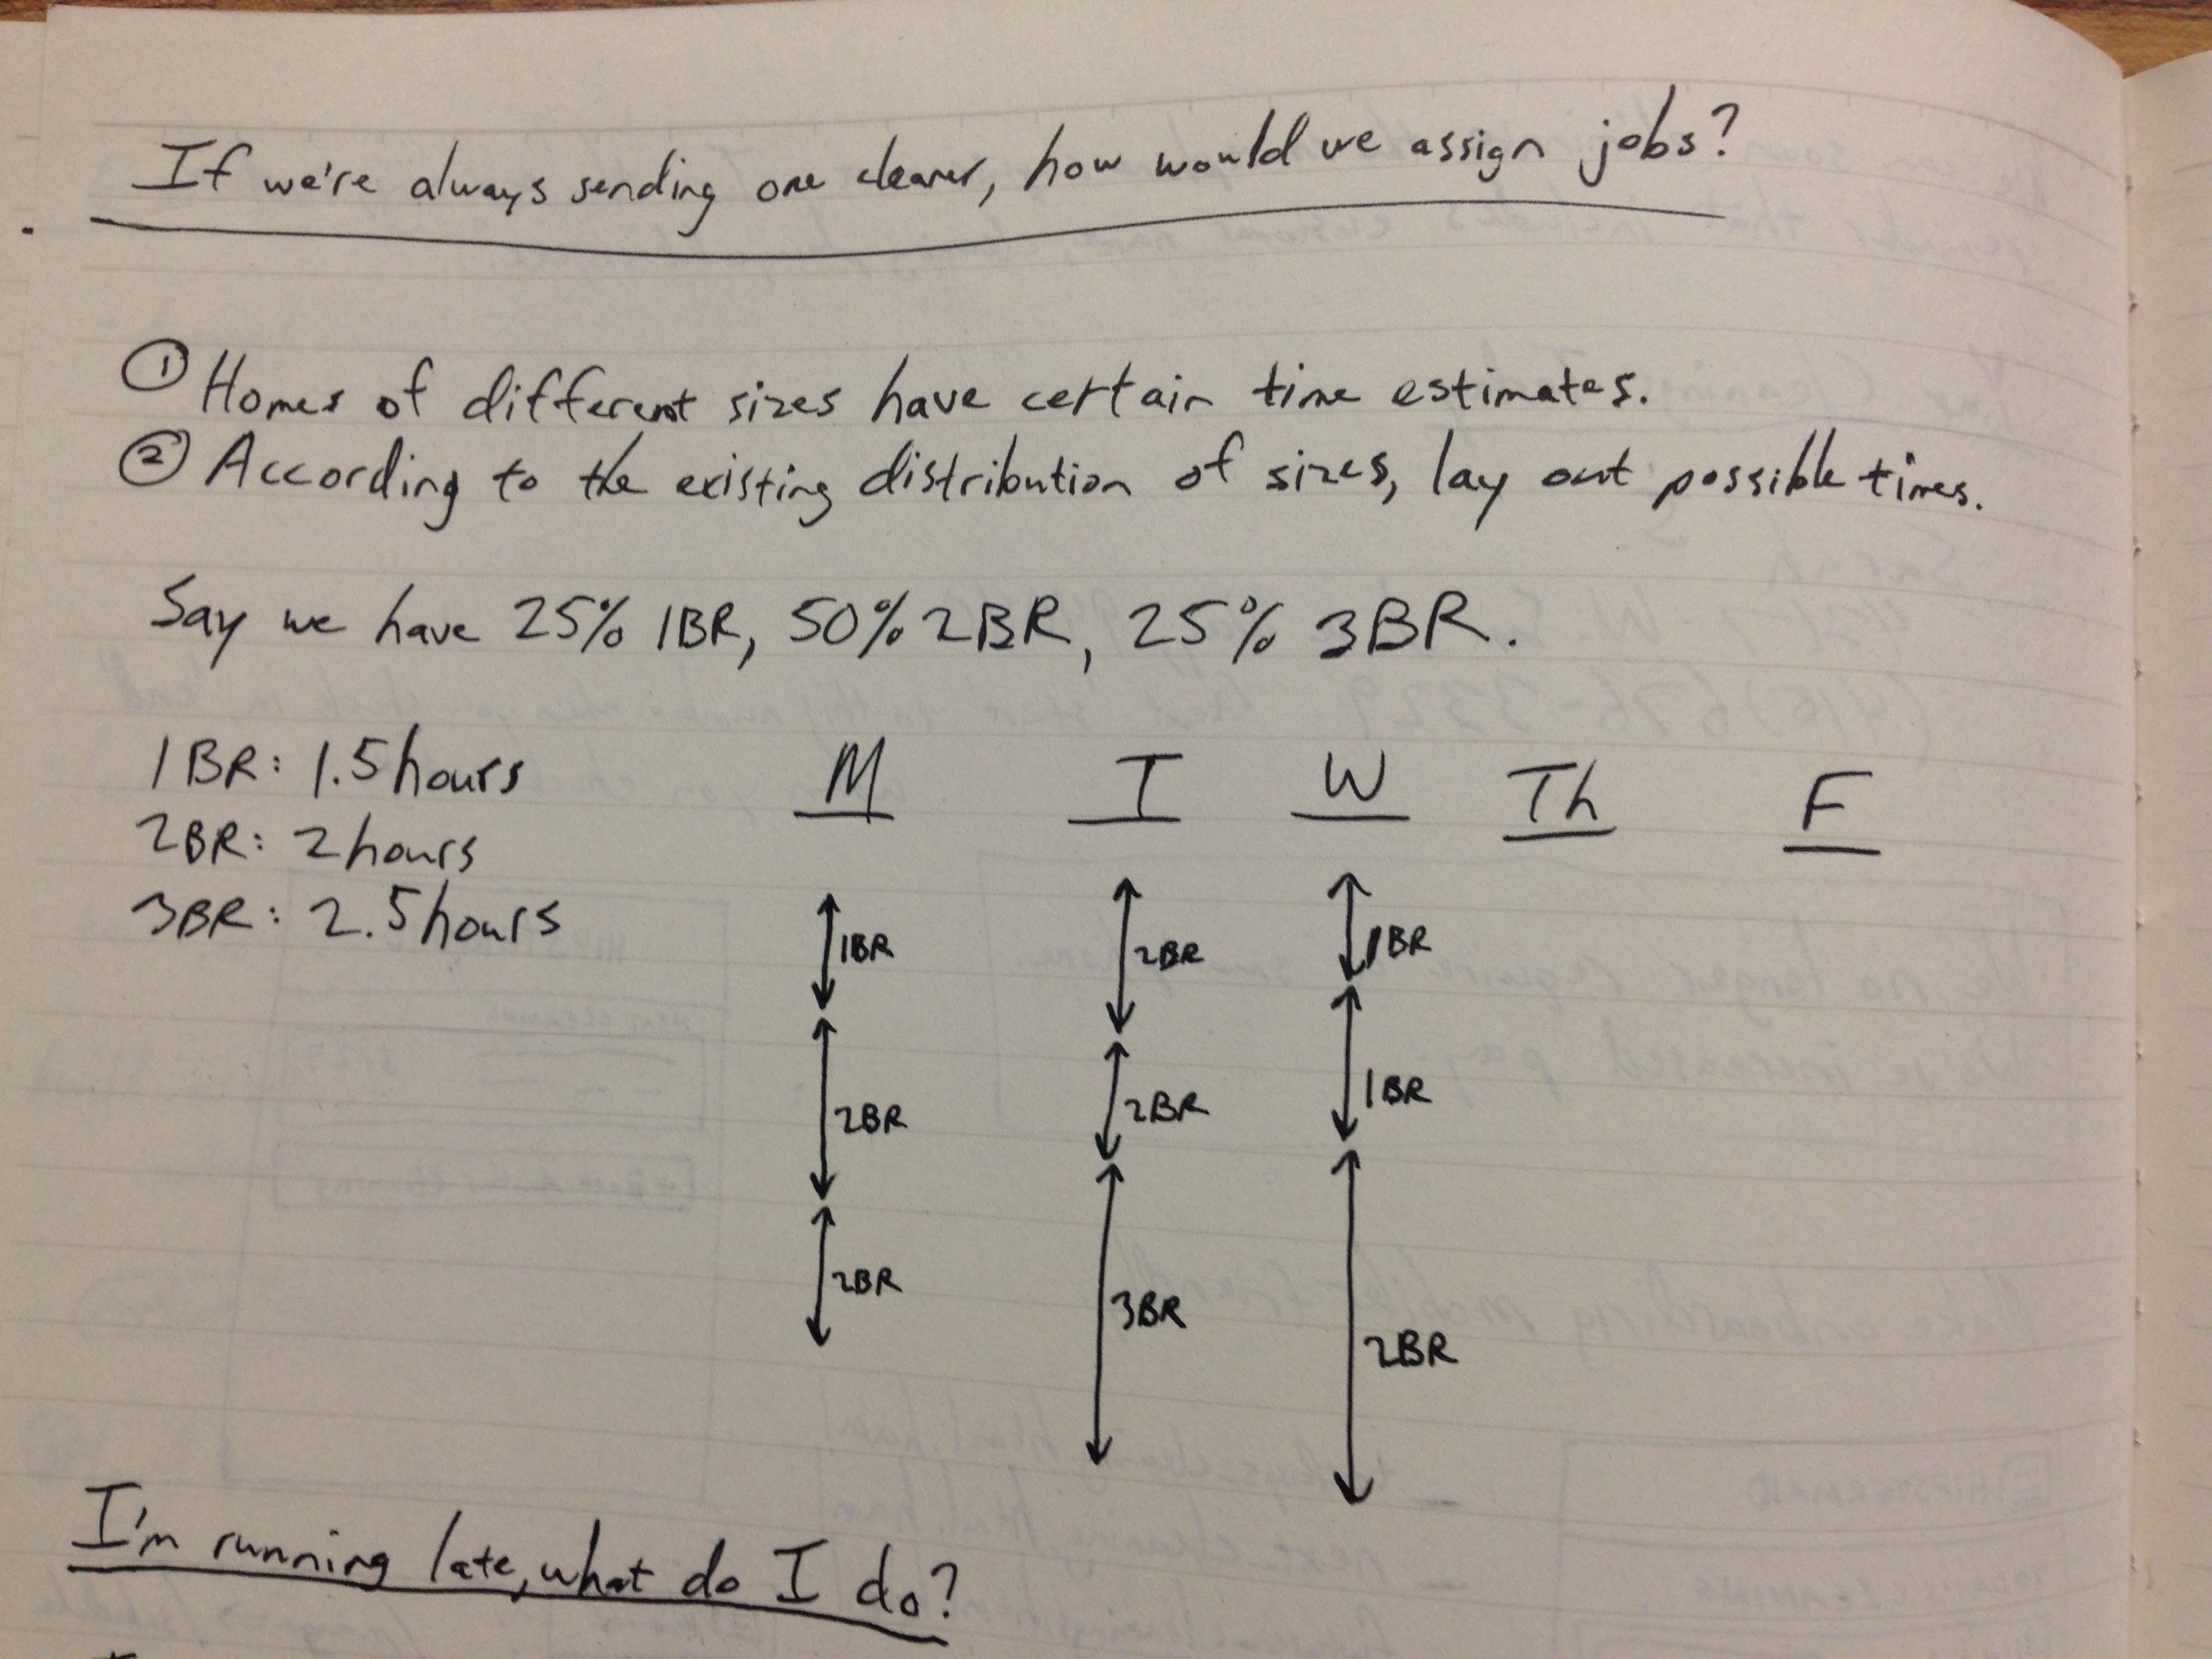 If we're always sending one cleaner, how would we assign jobs?
① Homes of different sizes have certain time estimates.
② According to the existing distribution of sizes, lay out possible times.
Say we have 25% 1BR, 50% 2BR, 25% 3BR.
1BR: 1.5 hours
2BR: 2 hours
3BR: 2.5 hours
M T W Th F
1BR 2BR 1BR
2BR 2BR 1BR
2BR 3BR 2BR
I'm running late, what do I do?